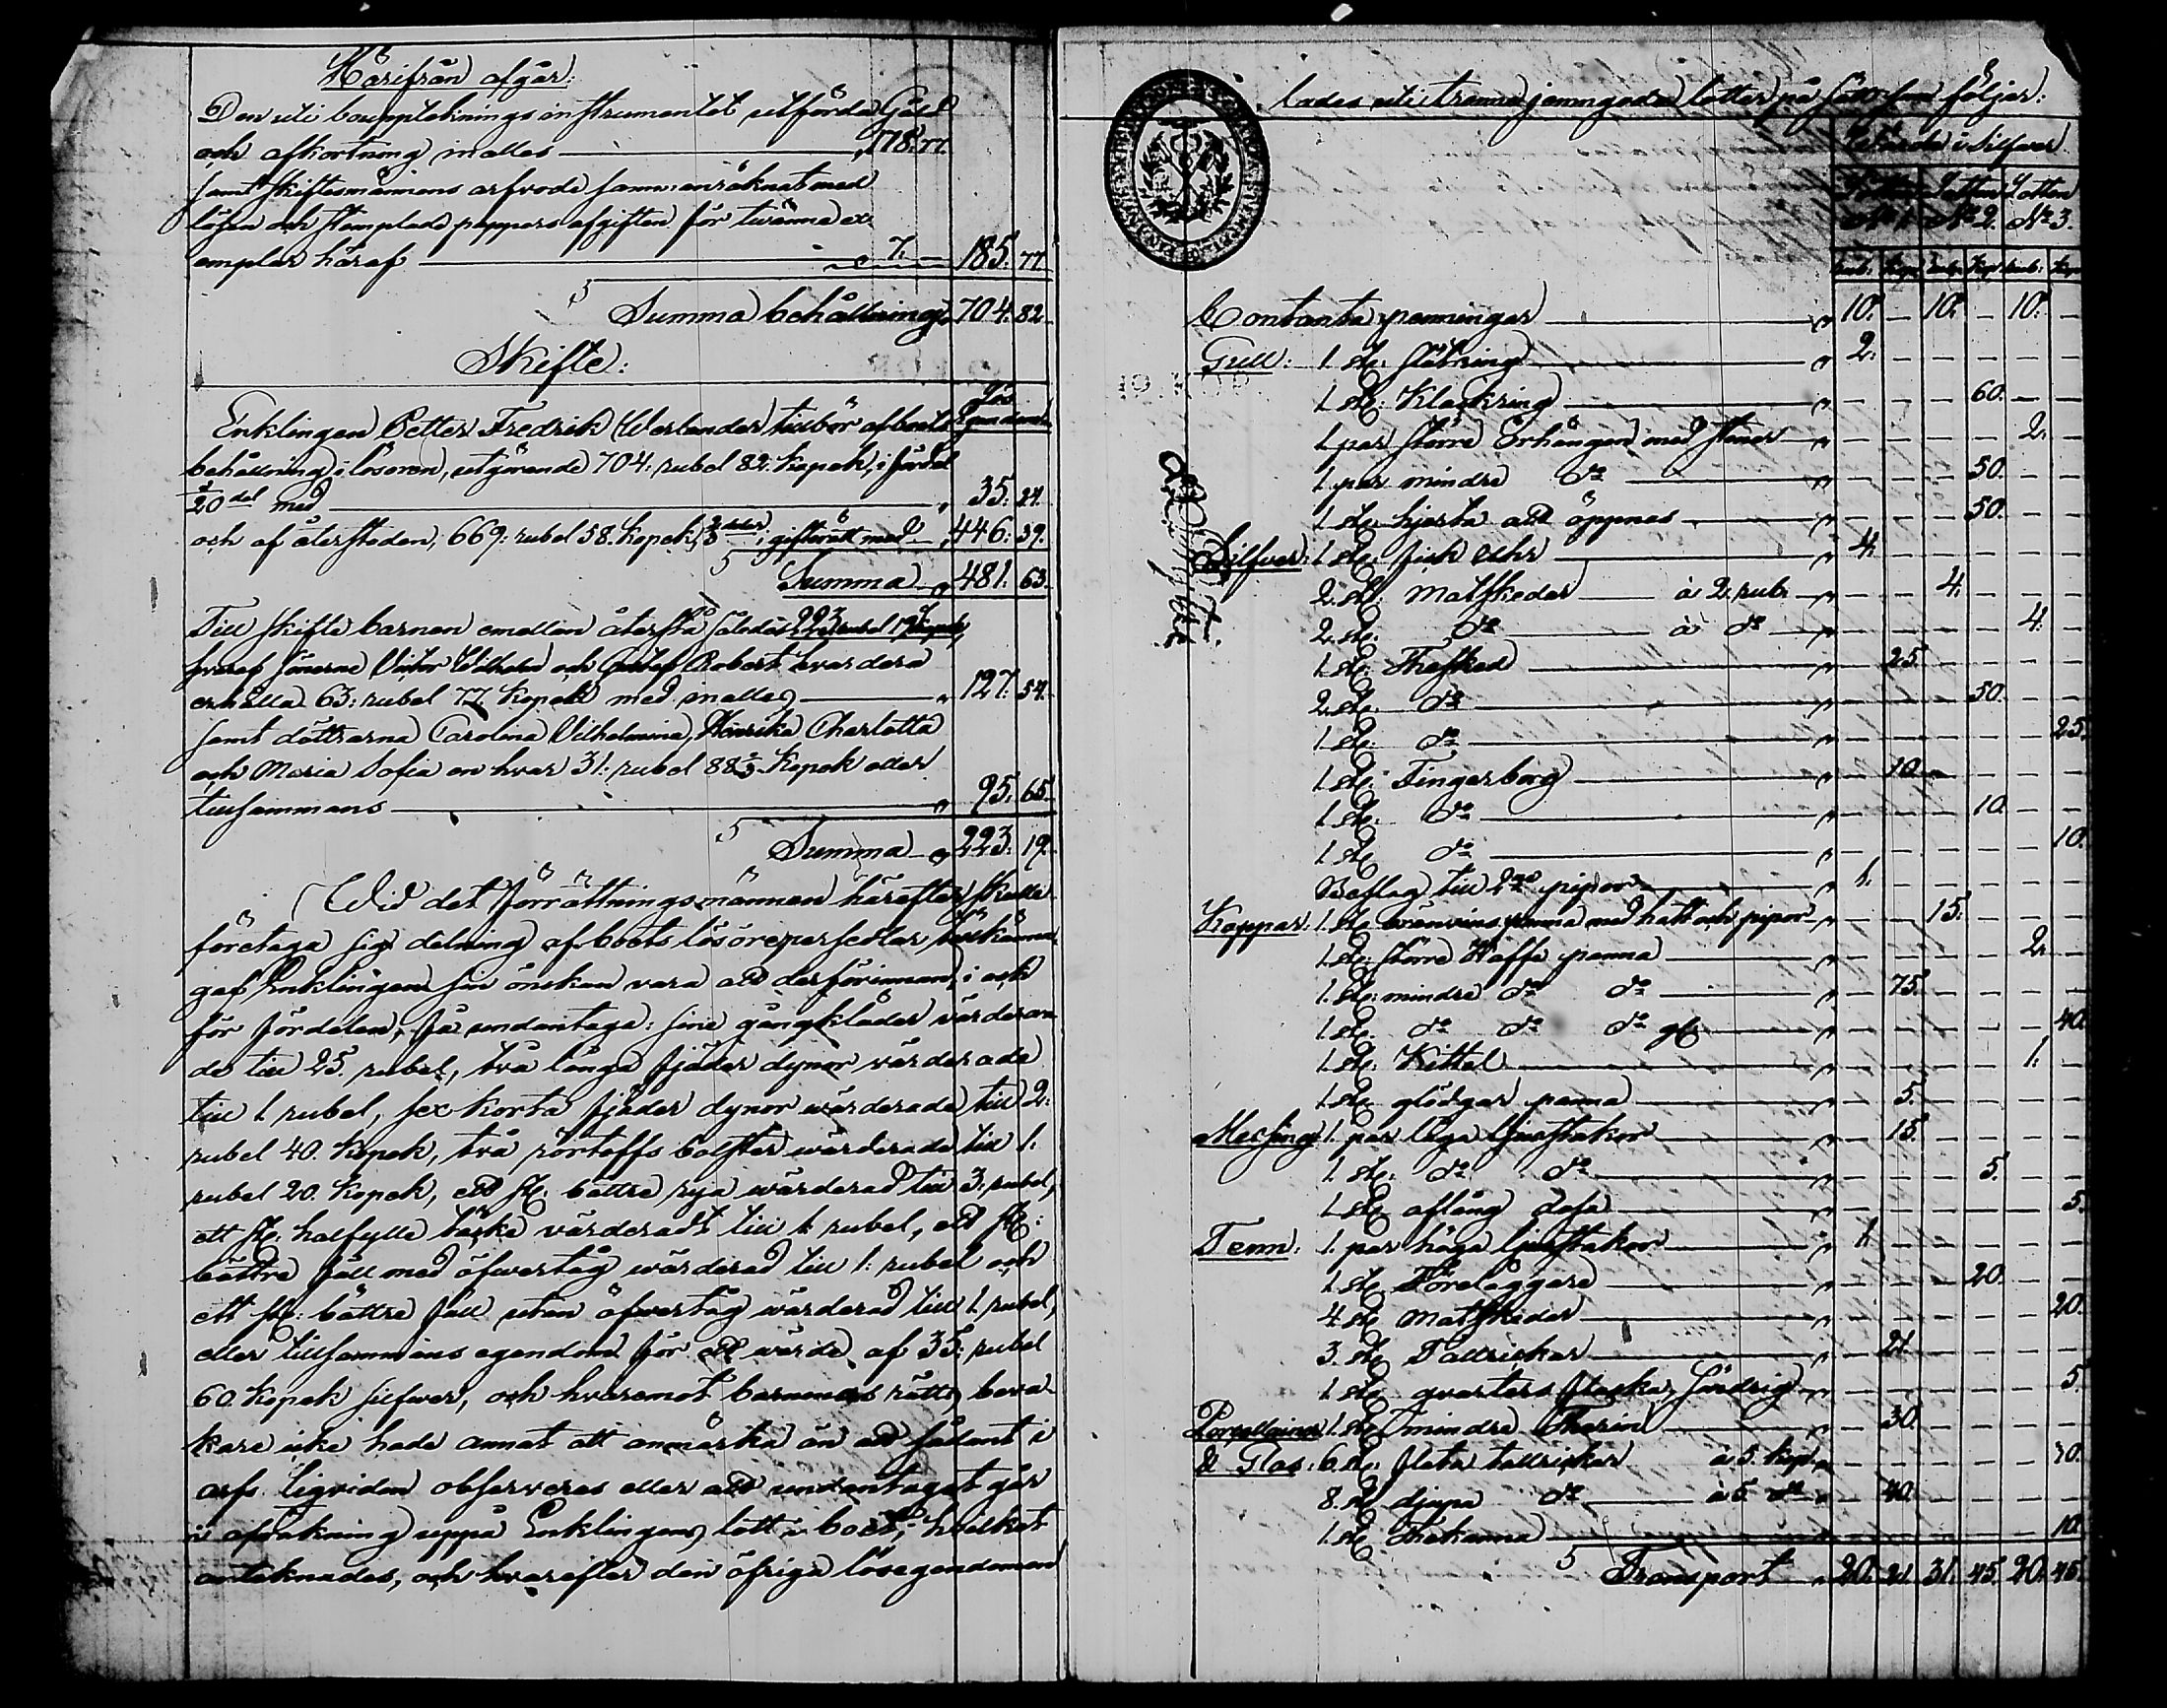 Härifrån afgår:
Den uti bouppteknings instrumentet utförda Gäld
och afkortning in alles — 178. 77.
samt skiftesmännens arfvode samman räknat med
lösen och stämplade pappers afgiften för twänne ex-
emplar häraf — 7. — 185. 77.
Summa behållning 704. 82.
Skifte:
Lös Egendom
Enklingen Petter Fredrik Werlander tillkör af boets
behållning i lösören, utgörande 704. rubel 82. Kopek, i fördel
1/20 del med — 35. 24.
och af återstoden, 669. rubel 58. Kopek, 2/3 delar i giftorätt med — 446. 39.
Summa — 481. 63.
Till skifte barnen emellan återstå således 223 rubel 19 Kopek,
hvaraf sönerne Victor Wilhelm och Gustaf Robert hvardera
erhålla 63. rubel 77. Kopek med in alles — 127. 54.
samt döttrarna Carolina Vilhelmina, Henrika Charlotta
och Maria Sofia en hvar 31. rubel 88 1/3 Kopek eller
tillsammans — 95. 65.
Summa — 223. 19.
Wid det förrättningsmännen härefter skulle
företaga sig delning af boets lösörepersedlar
gaf Enklingen sin önskan vara att derförinnan, i och
för fördelen, få undantaga: sine gångkläder värdera-
de till 25. rubel, två långa fjäder dynor värderade
till 1. rubel, sex korta fjäder dynor wärderade till 2:
rubel 40. Kopek, två bolster wärderade till 1:
rubel 20. Kopek, ett st: bättre rya wärderad till 3. rubel,
ett st: täcke värderadt till 1. rubel, ett st:
bättre fäll med öfvertåg wärderad till 1: rubel och
ett st: bättre fäll utan öfwertåg wärderad till 1. rubel,
eller tillsammans egendom för ett wärde af 35: rubel
60. Kopek silfwer, och hvaremot barnens rätts beva-
kare icke hade annat att anmärka än att sådant i
arfs liqviden observeras eller att undantaget går
i afräkning uppå Enklingens lott i boet; hvilket
anteknades, och hvarefter den öfriga lösegendomen
lades uti trenne jemngoda lotter på sätt som följer:
Wärde i Silfwer.
Lotten N:o 1. Lotten N:o 2. Lotten N:o 3.
Rub. Kop. Rub. Kop. Rub. Kop.
Contanta penningar — 10. — 10. — 10. —
Gull: 1. st: slätring — 2. — — — — —
1. st: Klackring — — — — 60. — —
1. par större Örhängen med stenar — — — — — 2. —
1. par mindre d:o — — — — 50. — —
1. st: hjerta att öppnas — — — — 50. — —
Silfver: 1. st: fick Uhr — 4. — — — — —
2. st: Matskedar — à 2. rub. — — — 4. — — —
2. st: d:o — à d:o — — — — — 4. —
1. st: Thesked — — 25. — — — —
2. st: d:o — — — — 50. — —
1. st: d:o — — — — — — 25.
1. st: Fingerborg — — 10. — — — —
1. st: d:o — — — — 10. — —
1. st: d:o — — — — — — 10.
Beslag till 2:ne pipor — 1. — — — — —
Koppar: 1. st: bränvins panna med hatt och pipor — — — 15. — — —
1. st: större Kaffe panna — — — — — 2. —
1. st: mindre d:o d:o — — 75. — — — —
1. st: d:o d:o d:o gl: — — — — — — 40.
1. st: Kittel — — — — — 1. —
1. st: glödgar panna — — 5. — — — —
Messing: 1. par låga ljusstakar — — 15. — — — —
1. st: d:o d:o — — — — 5. — —
1. st: aflång — — — — — — 5.
Tenn: 1. par höga ljusstakar — 1. — — — — —
1. st: Föreläggare — — — — 20. — —
4. st: Matskedar — — — — — — 20.
3. st: Tallrickar — — 21. — — — —
1. st: qvarters flaska, — — — — — — 5.
Porcellainer 1. st: mindre Therin — — 30. — — — —
& Glas: 6. st: flata tallrickar à 5. Kop. — — — — — — 30.
8. st: djupa d:o — à 5 d:o — — 40. — — — —
1. st: Thekanna — — — — — — 10.
Transport — 20. 21. 31. 45. 20. 45.